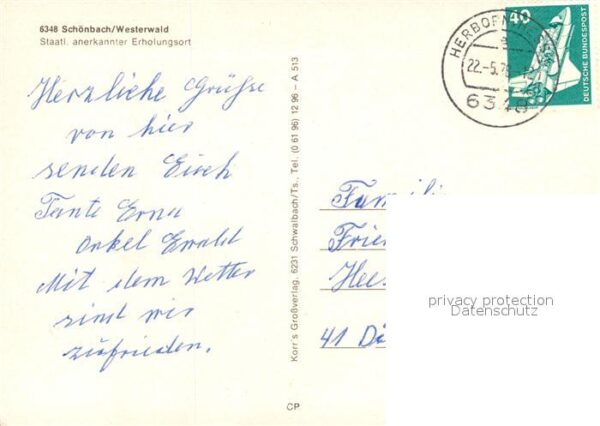 6348 Schönbach/Westerwald
Staatl. anerkannter Erholungsort
Herzliche Grüße
von hier
senden Euch
Tante Erna
Onkel Ewald
Mit dem Wetter
sind wir
zufrieden.
Korr's Großverlag, 6231 Schwalbach/Ts., Tel. (0 61 96) 12 96 – A 513
CP
HERBORN
22.-5.78
6348
40
DEUTSCHE BUNDESPOST
Famili
Frie
Hees
41 D
privacy protection
Datenschutz